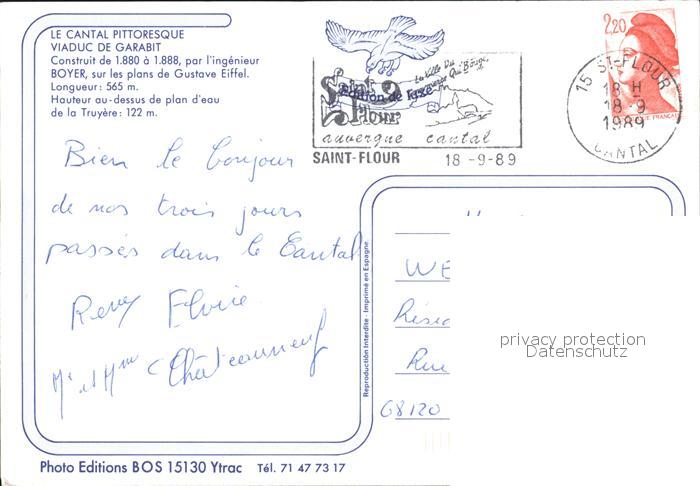 LE CANTAL PITTORESQUE
VIADUC DE GARABIT
Construit de 1.880 à 1.888, par l'ingénieur
BOYER, sur les plans de Gustave Eiffel.
Longueur: 565 m.
Hauteur au-dessus de plan d'eau
de la Truyère: 122 m.
2,20
Saint
Flour
édition de luxe
auvergne cantal
SAINT-FLOUR 18-9-89
15 ST-FLOUR
18 H
18 9
1989
CANTAL
Bien le bonjour
de nos trois jours
passés dans le Cantal
WE
Rue
68120
Reproduction Interdite - Imprimé en Espagne
privacy protection
Datenschutz
Photo Editions BOS 15130 Ytrac Tél. 71 47 73 17